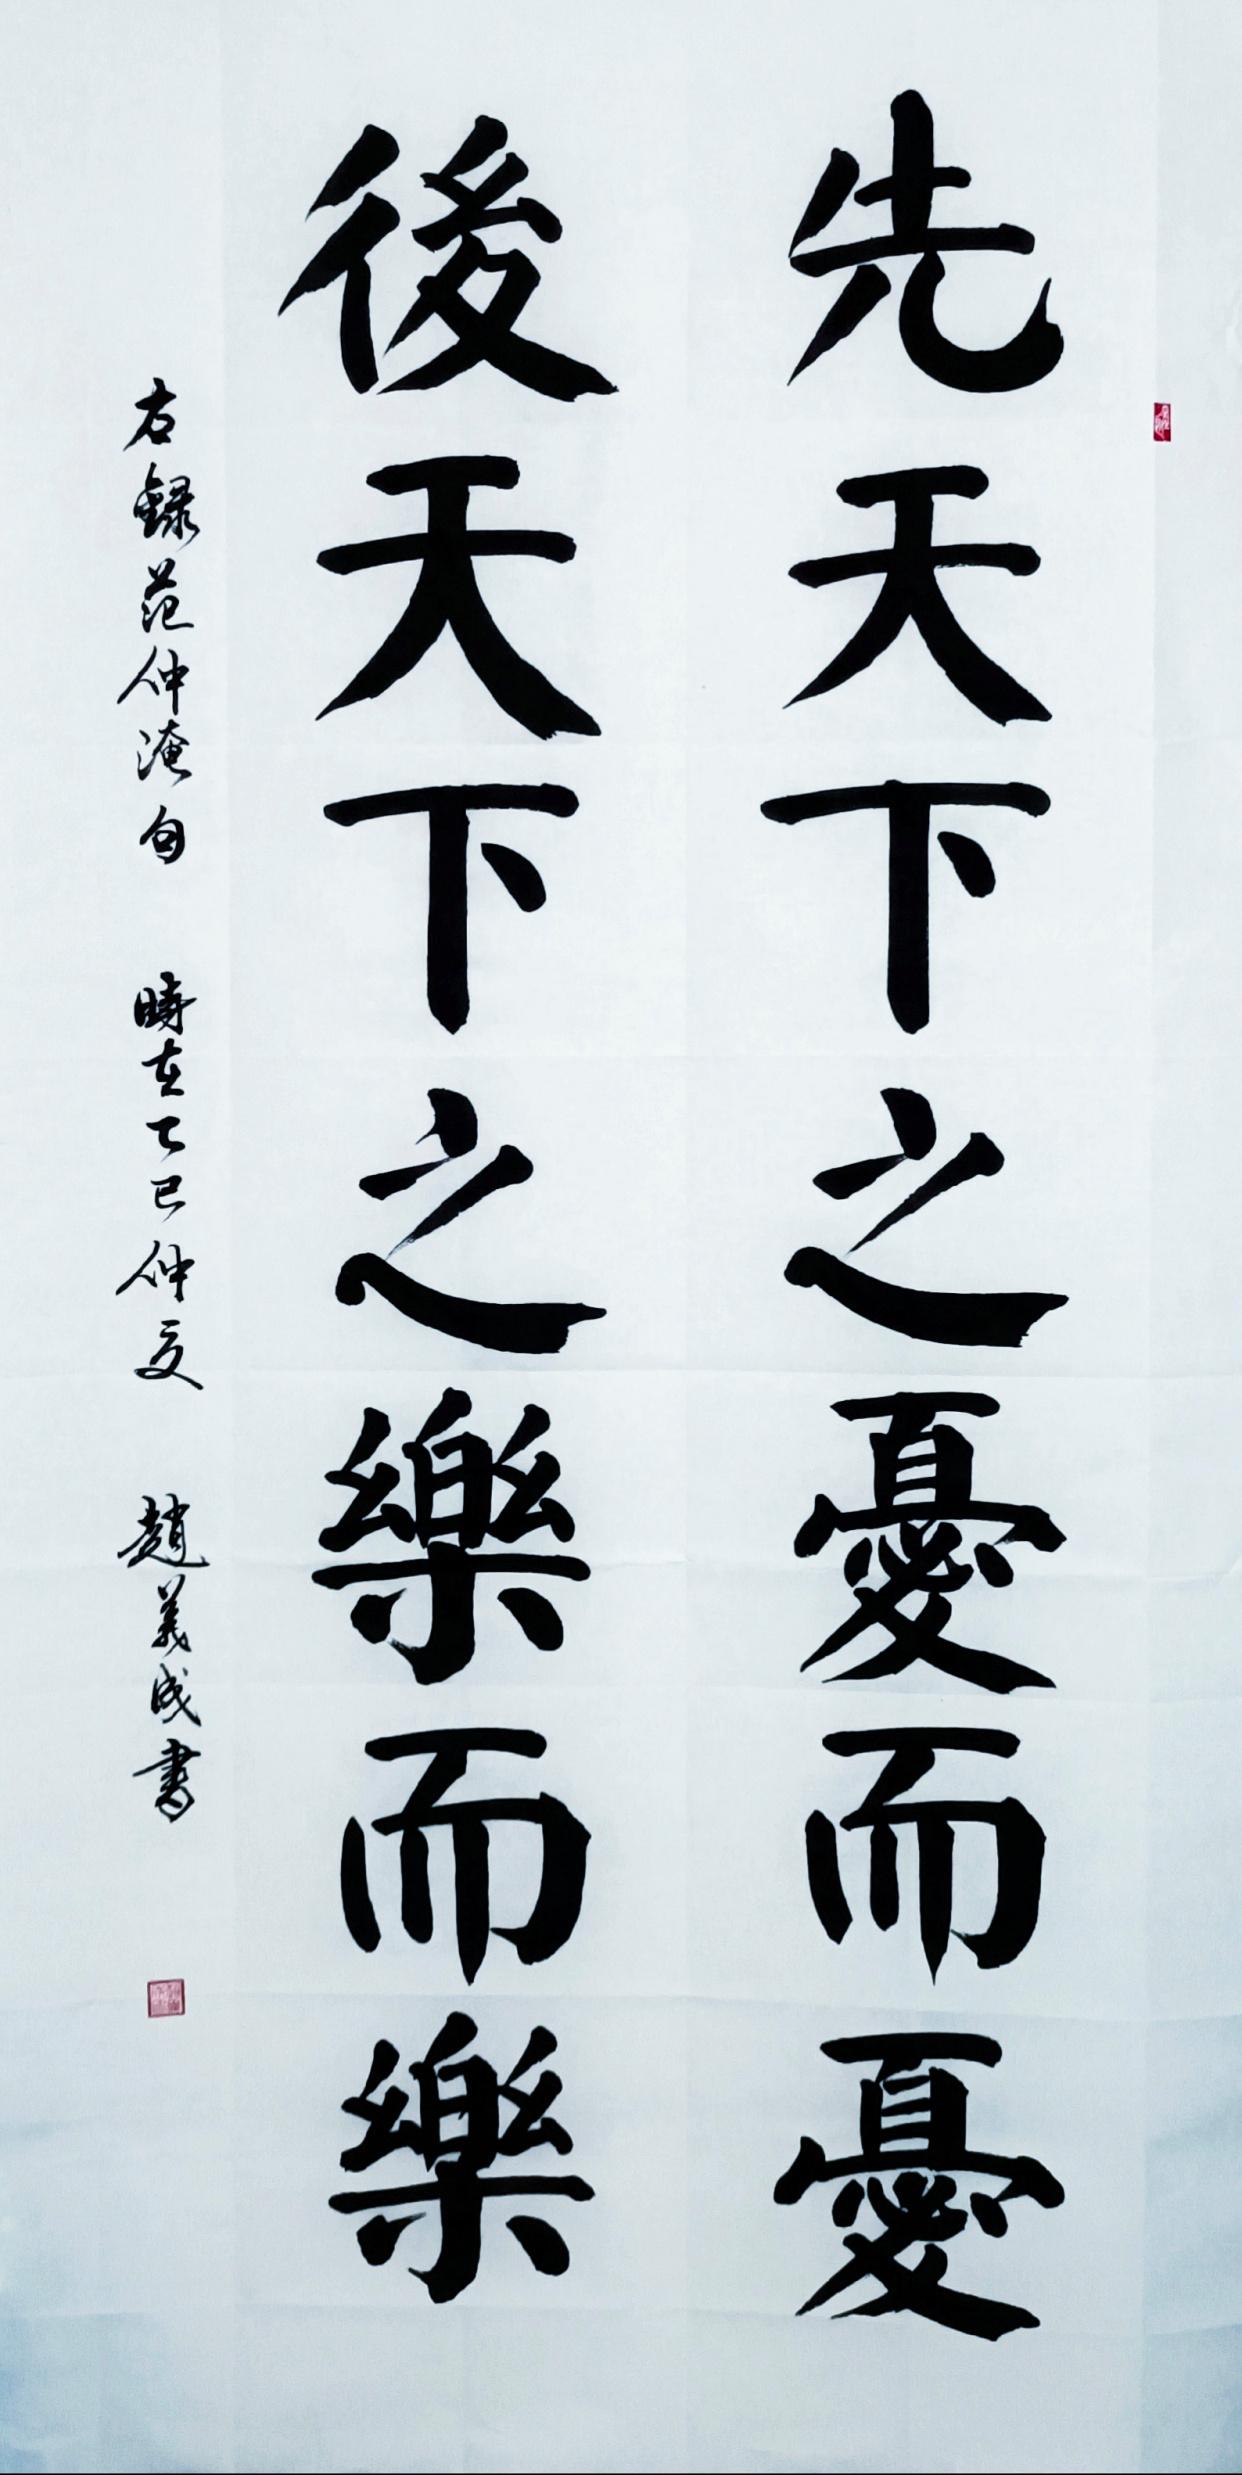 先天下之憂而憂
後天下之樂而樂
右錄范仲淹句 時在乙巳仲夏 趙義成書